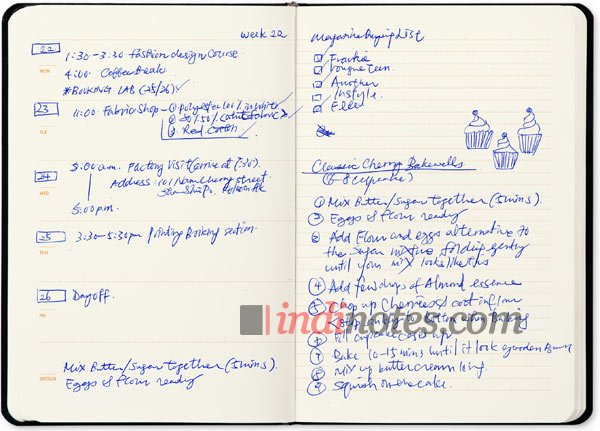 Week 22
22
MON
1:30-3:30 Fashion design Course
4:00 Coffee Break
*BOOKING LAB (25/26)
23
TUE
11:00 Fabric Shop - ① polyester 100% in white
② 50% 50%
③ Red Cotton
24
WED
9:00 a.m. Factory Visit (arrive at 7:30)
Address: 101 Nam Cheong street
5:00 p.m.
25
THU
3:30-5:30pm Printing Booking section
26
FRI
Day off.
SAT/SUN
Mix Butter/Sugar together (5mins).
Eggs & Flour ready
Magazine Buying List
Frankie
Vogue Teen
Another
Instyle
Elle
Classic Cherry Bakewells
(6-8 cupcake)
① Mix Butter/Sugar together (5mins).
② Eggs & Flour ready
③ Add Flour and eggs alternative to
the sugar mixture folding gently
until your mix looks like this
④ Add few drops of Almond essence
⑤ Chop up Cherries & coat in flour
⑥ Fill cupcake cases up
⑦ Bake 10-15 mins until it look golden
⑧ Mix up butter cream icing
⑨ Squish on the cake.
indinotes.com